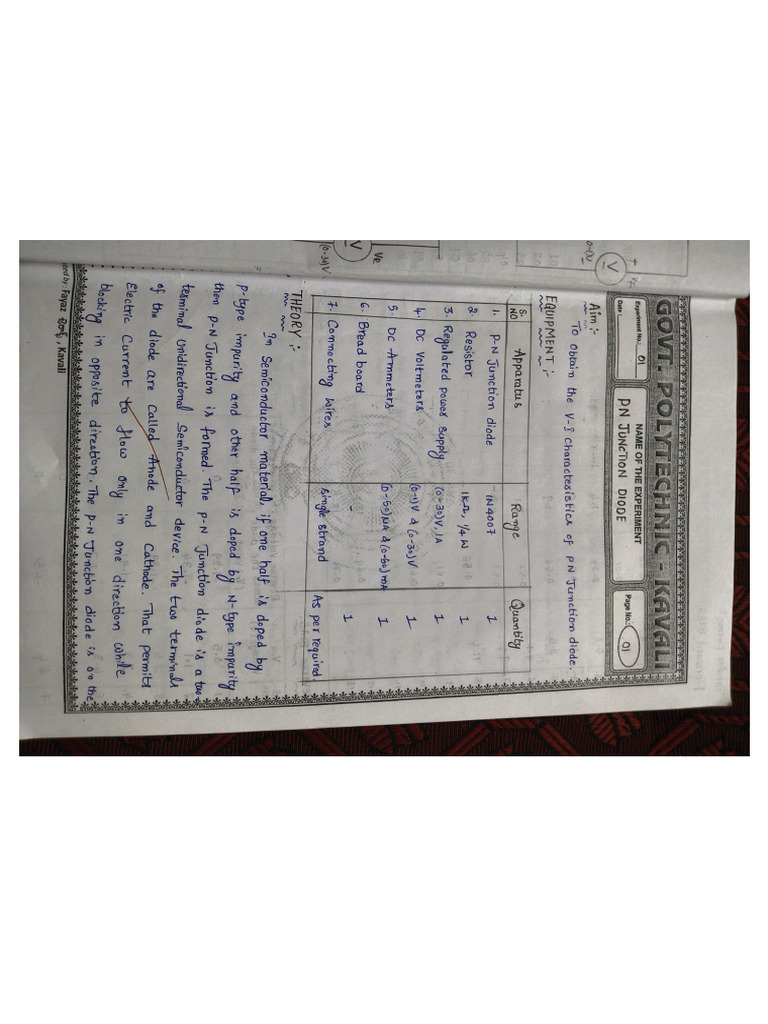 GOVT. POLYTECHNIC - KAVALI
Experiment No.: 01
NAME OF THE EXPERIMENT
Page No.: 01
Date :
PN JUNCTION DIODE
Aim :-
To obtain the V-I characteristics of PN Junction diode.
EQUIPMENT :-
S.NO Apparatus Range Quantity
1. P-N Junction diode 1N4007 1
2. Resistor 1KΩ, 1/4 W 1
3. Regulated power supply (0-30)V, 1A 1
4. DC Voltmeters (0-1)V & (0-30)V 1
5. DC Ammeters (0-50)μA & (0-50)mA 1
6. Bread board - 1
7. Connecting wires single strand As per required.
THEORY :-
In Semiconductor material, if one half is doped by
P-type impurity and other half is doped by N-type impurity
then P-N Junction is formed. The P-N Junction diode is a two
terminal unidirectional Semiconductor device. The two terminals
of the diode are called Anode and Cathode. That permits
Electric Current to flow only in one direction while
blocking in opposite direction. The P-N Junction diode is on the
Fayaz , Kavali
V
V
(0-30)V